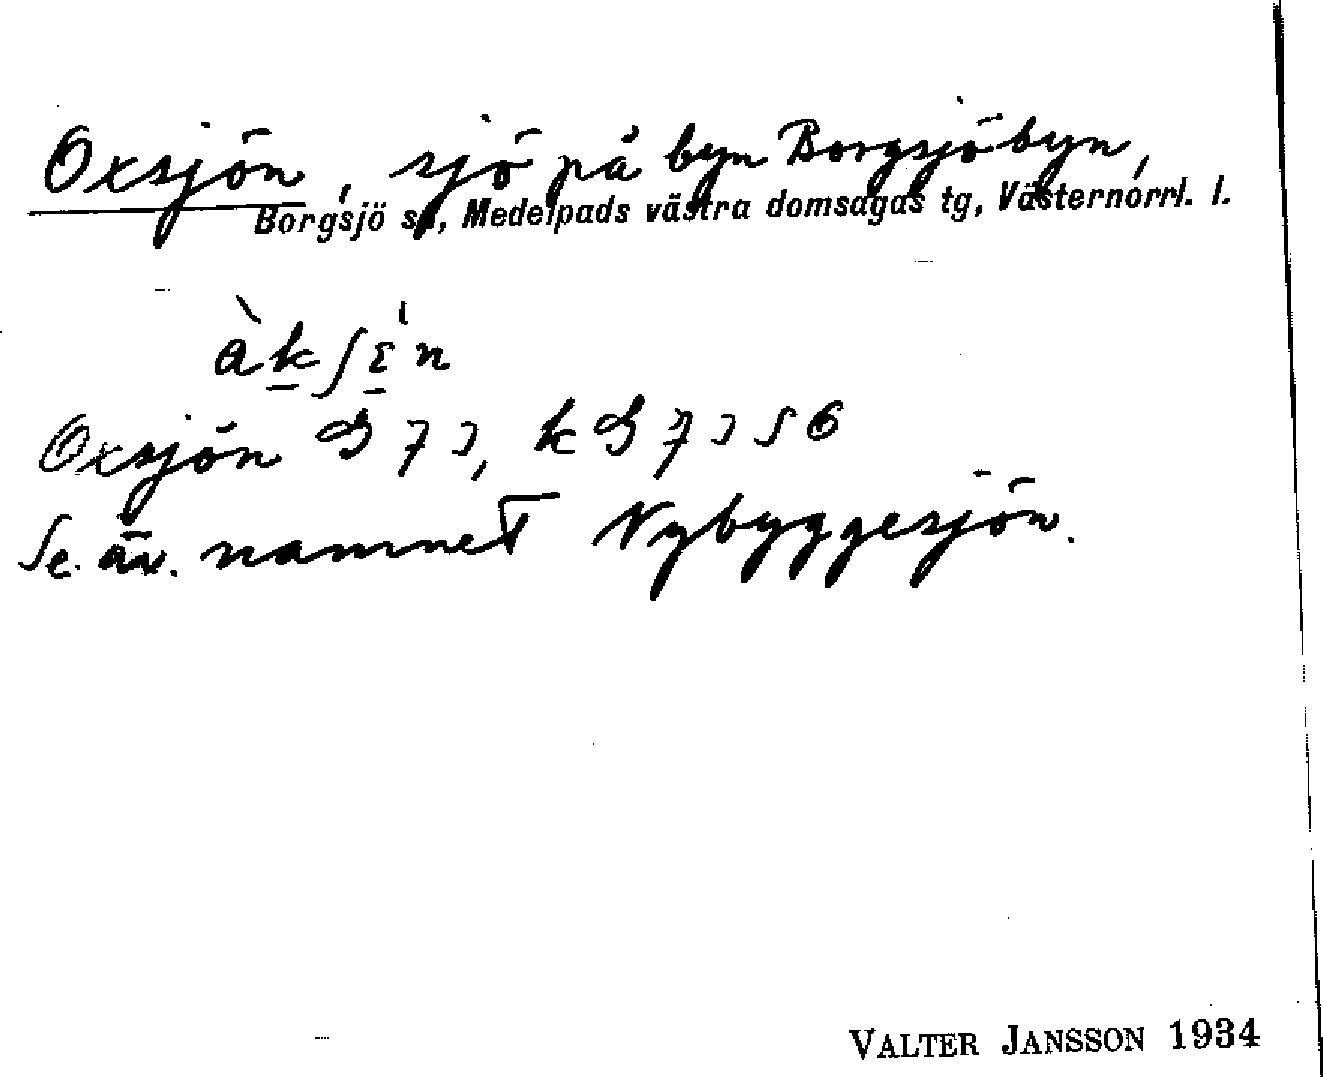 Oxsjön, sjö på byn Borgsjöbyn,
Borgsjö sn, Medelpads västra domsagas tg, Västernorrl. l.
Oxsjön
Se. äv. namnet Nybyggesjön.
VALTER JANSSON 1934